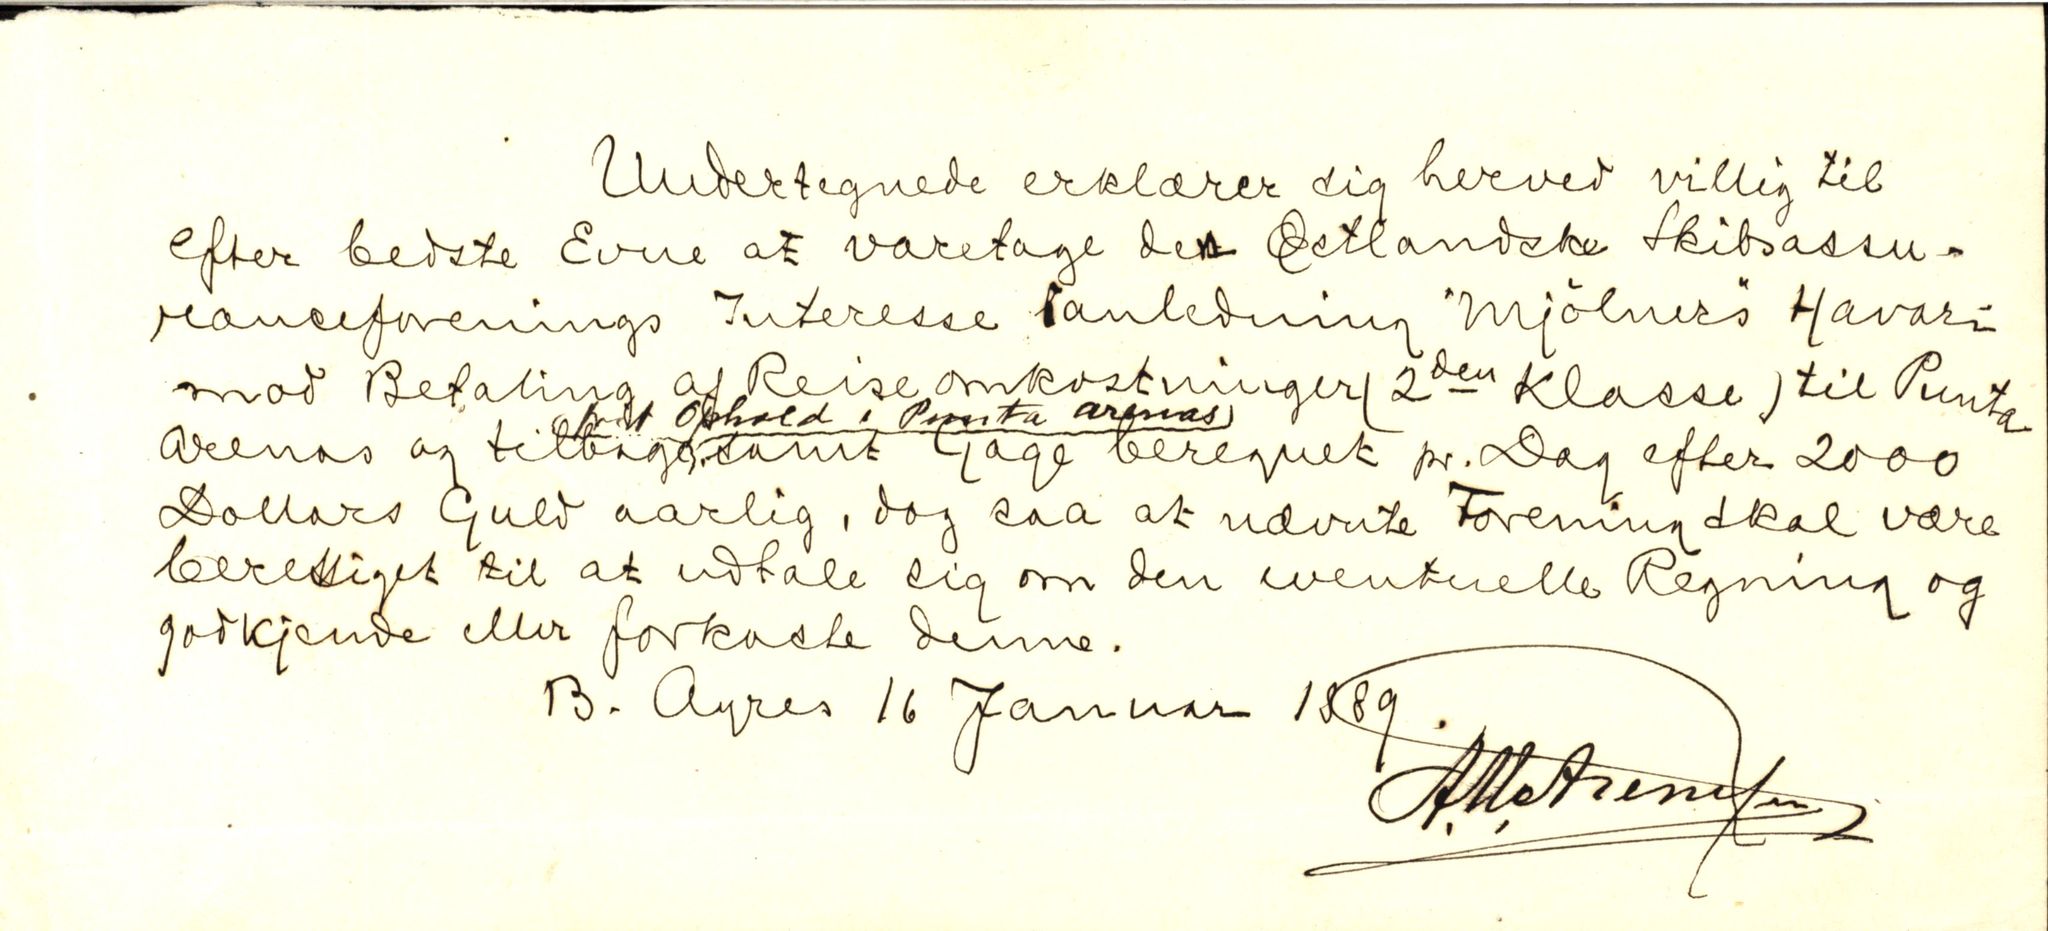 Undertegnede erklærer sig herved villig til
efter bedste Evne at varetage den Østlandske Skibsassu-
ranceforenings Interesse i anledning "Mjölner"s Havari
mod Betaling af Reiseomkostninger (2den Klasse) til Punta
frit Ophold i Punta Arenas
Arenas og tilbage, samt Gage beregnet pr. Dag efter 2000
Dollars Guld aarlig, dog saa at nævnte Forening skal være
berettiget til at udtale sig om den eventuelle Regning og
godkjende eller forkaste denne.
B. Ayres 16 Januar 1889.
Arentsen